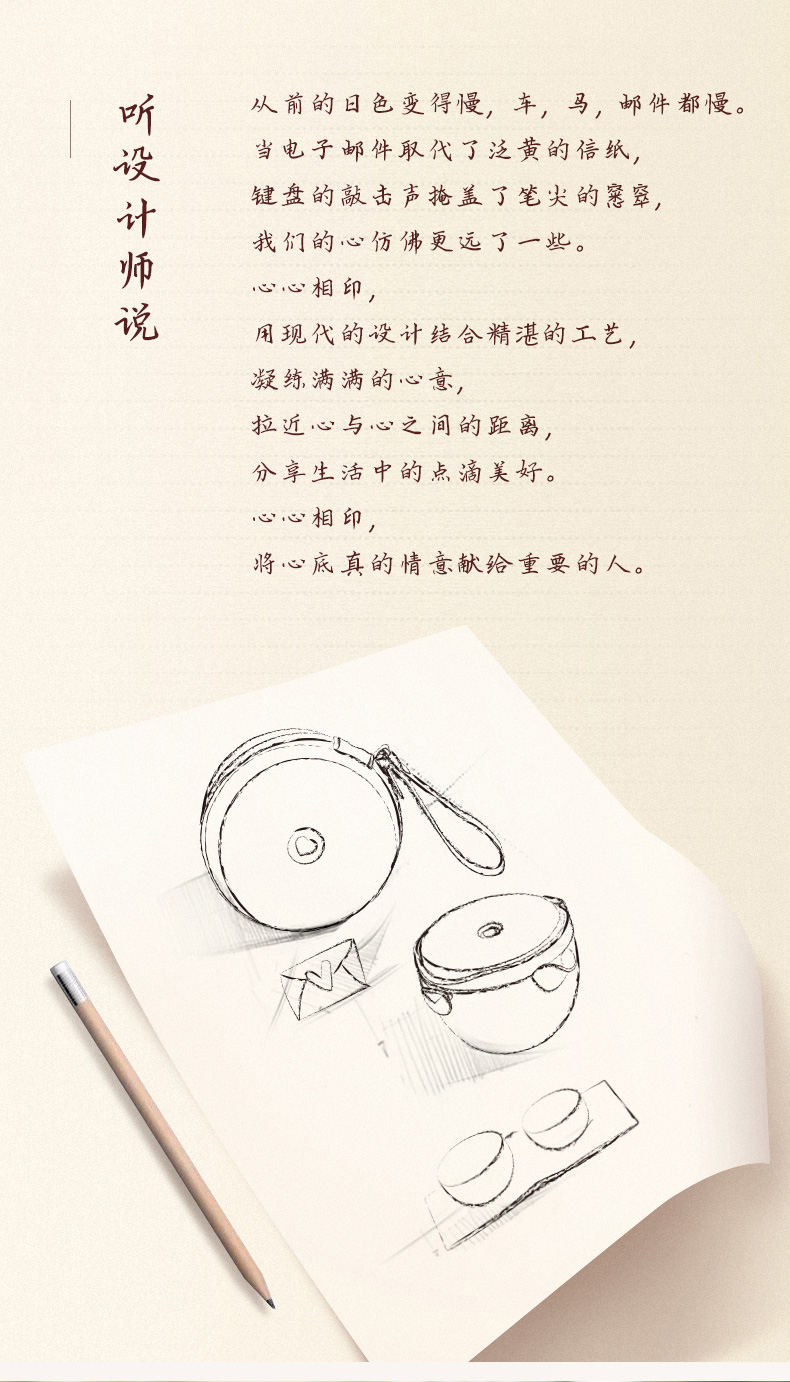 听设计师说
从前的日色变得慢，车，马，邮件都慢。
当电子邮件取代了泛黄的信纸，
键盘的敲击声掩盖了笔尖的窸窣，
我们的心仿佛更远了一些。
心心相印，
用现代的设计结合精湛的工艺，
凝练满满的心意，
拉近心与心之间的距离，
分享生活中的点滴美好。
心心相印，
将心底真的情意献给重要的人。